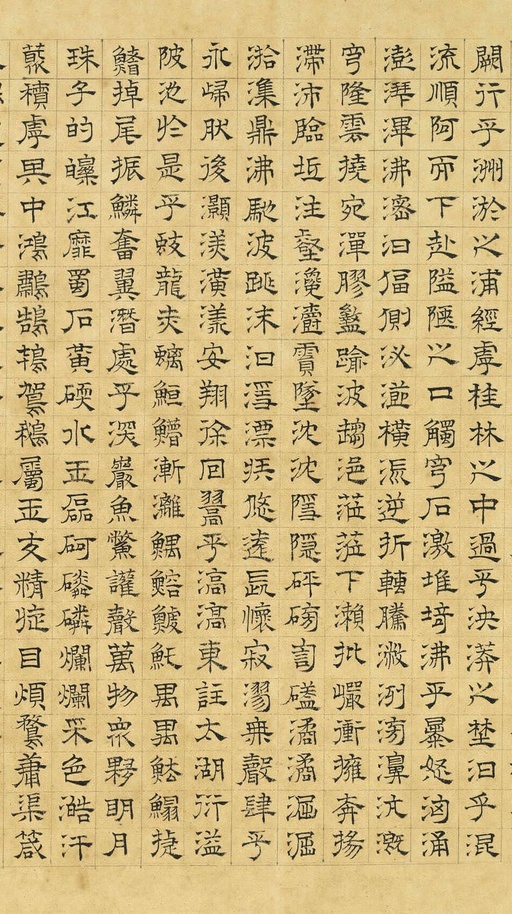 闕行乎洲淤之浦經虖桂林之中過乎泱莽之壄汩乎混
流順阿而下赴隘陿之口觸穹石激堆埼沸乎暴怒洶涌
澎湃滭沸滵汩偪側泌瀄橫流逆折轉騰潎洌滂濞沆溉
穹隆雲橈宛潬膠盭踰波趨浥蒞蒞下瀨批巖衝擁奔揚
滯沛臨坻注壑瀺灂霣墜沈沈隱隱砰磅訇礚潏潏淈淈
湁潗鼎沸馳波跳沫汩㴔漂疾悠遠長懷寂漻無聲肆乎
永歸肰後灝溔潢漾安翔徐回翯乎滈滈東注太湖衍溢
陂池於是乎蛟龍赤螭䱭䲛漸灕鰅鰫鰬魠禺禺魼鰨揵
鰭掉尾振鱗奮翼潛處乎深巖魚鱉讙聲萬物眾夥明月
珠子的皪江靡蜀石黃碝水玉磊砢磷磷爛爛采色澔汗
藂積虖其中鴻鷫鵠鴇鴐鵝屬玉交精旋目煩鶩庸渠箴